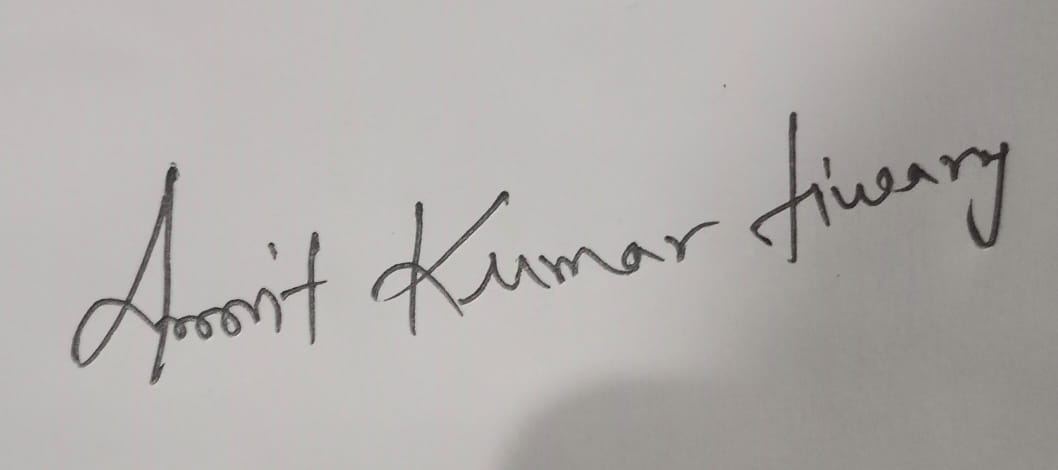 Amit Kumar Tiweary